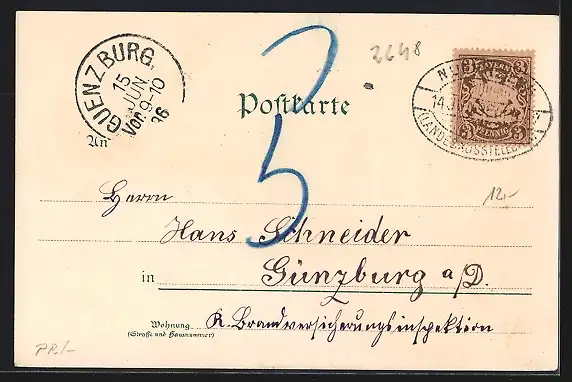 GUENZBURG.
15
JUN.
Vor. 9-10
96
2648
3
BAYERN
3
3
PFENNIG
3
14.
LANDESAUSSTELLUNG
Postkarte
5
An
Herrn
12,-
Hans Schneider
in Günzburg a/D.
Wohnung K. Brandversicherungsinspektion
(Straße und Hausnummer)